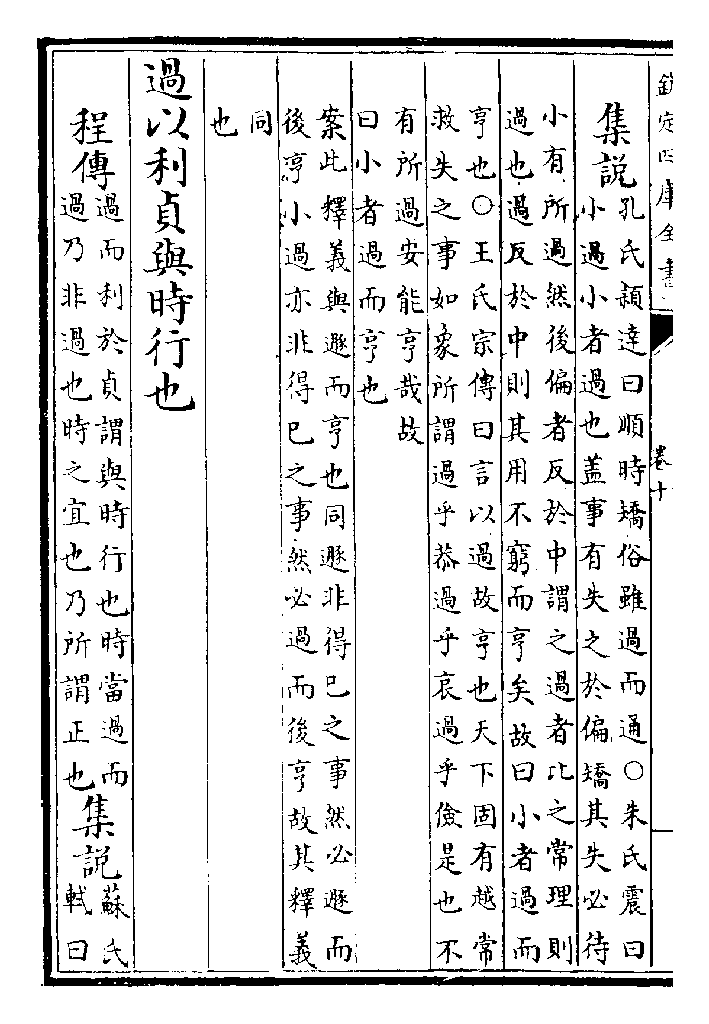 欽定四庫全書
卷十
集說
孔氏穎達曰順時矯俗雖過而通〇朱氏震曰
小過小者過也蓋事有失之於偏矯其失必待
小有所過然後偏者反於中謂之過者比之常理則
過也過反於中則其用不窮而亨矣故曰小者過而
亨也〇王氏宗傳曰言以過故亨也天下固有越常
救失之事如象所謂過乎恭過乎哀過乎儉是也不
有所過安能亨哉故
曰小者過而亨也
案此釋義與遯而亨也同遯非得已之事然必遯而
後亨小過亦非得已之事然必過而後亨故其釋義
同
也
過以利貞與時行也
程傳
過而利於貞謂與時行也時當過而
過乃非過也時之宜也乃所謂正也
集說
蘇氏
軾曰